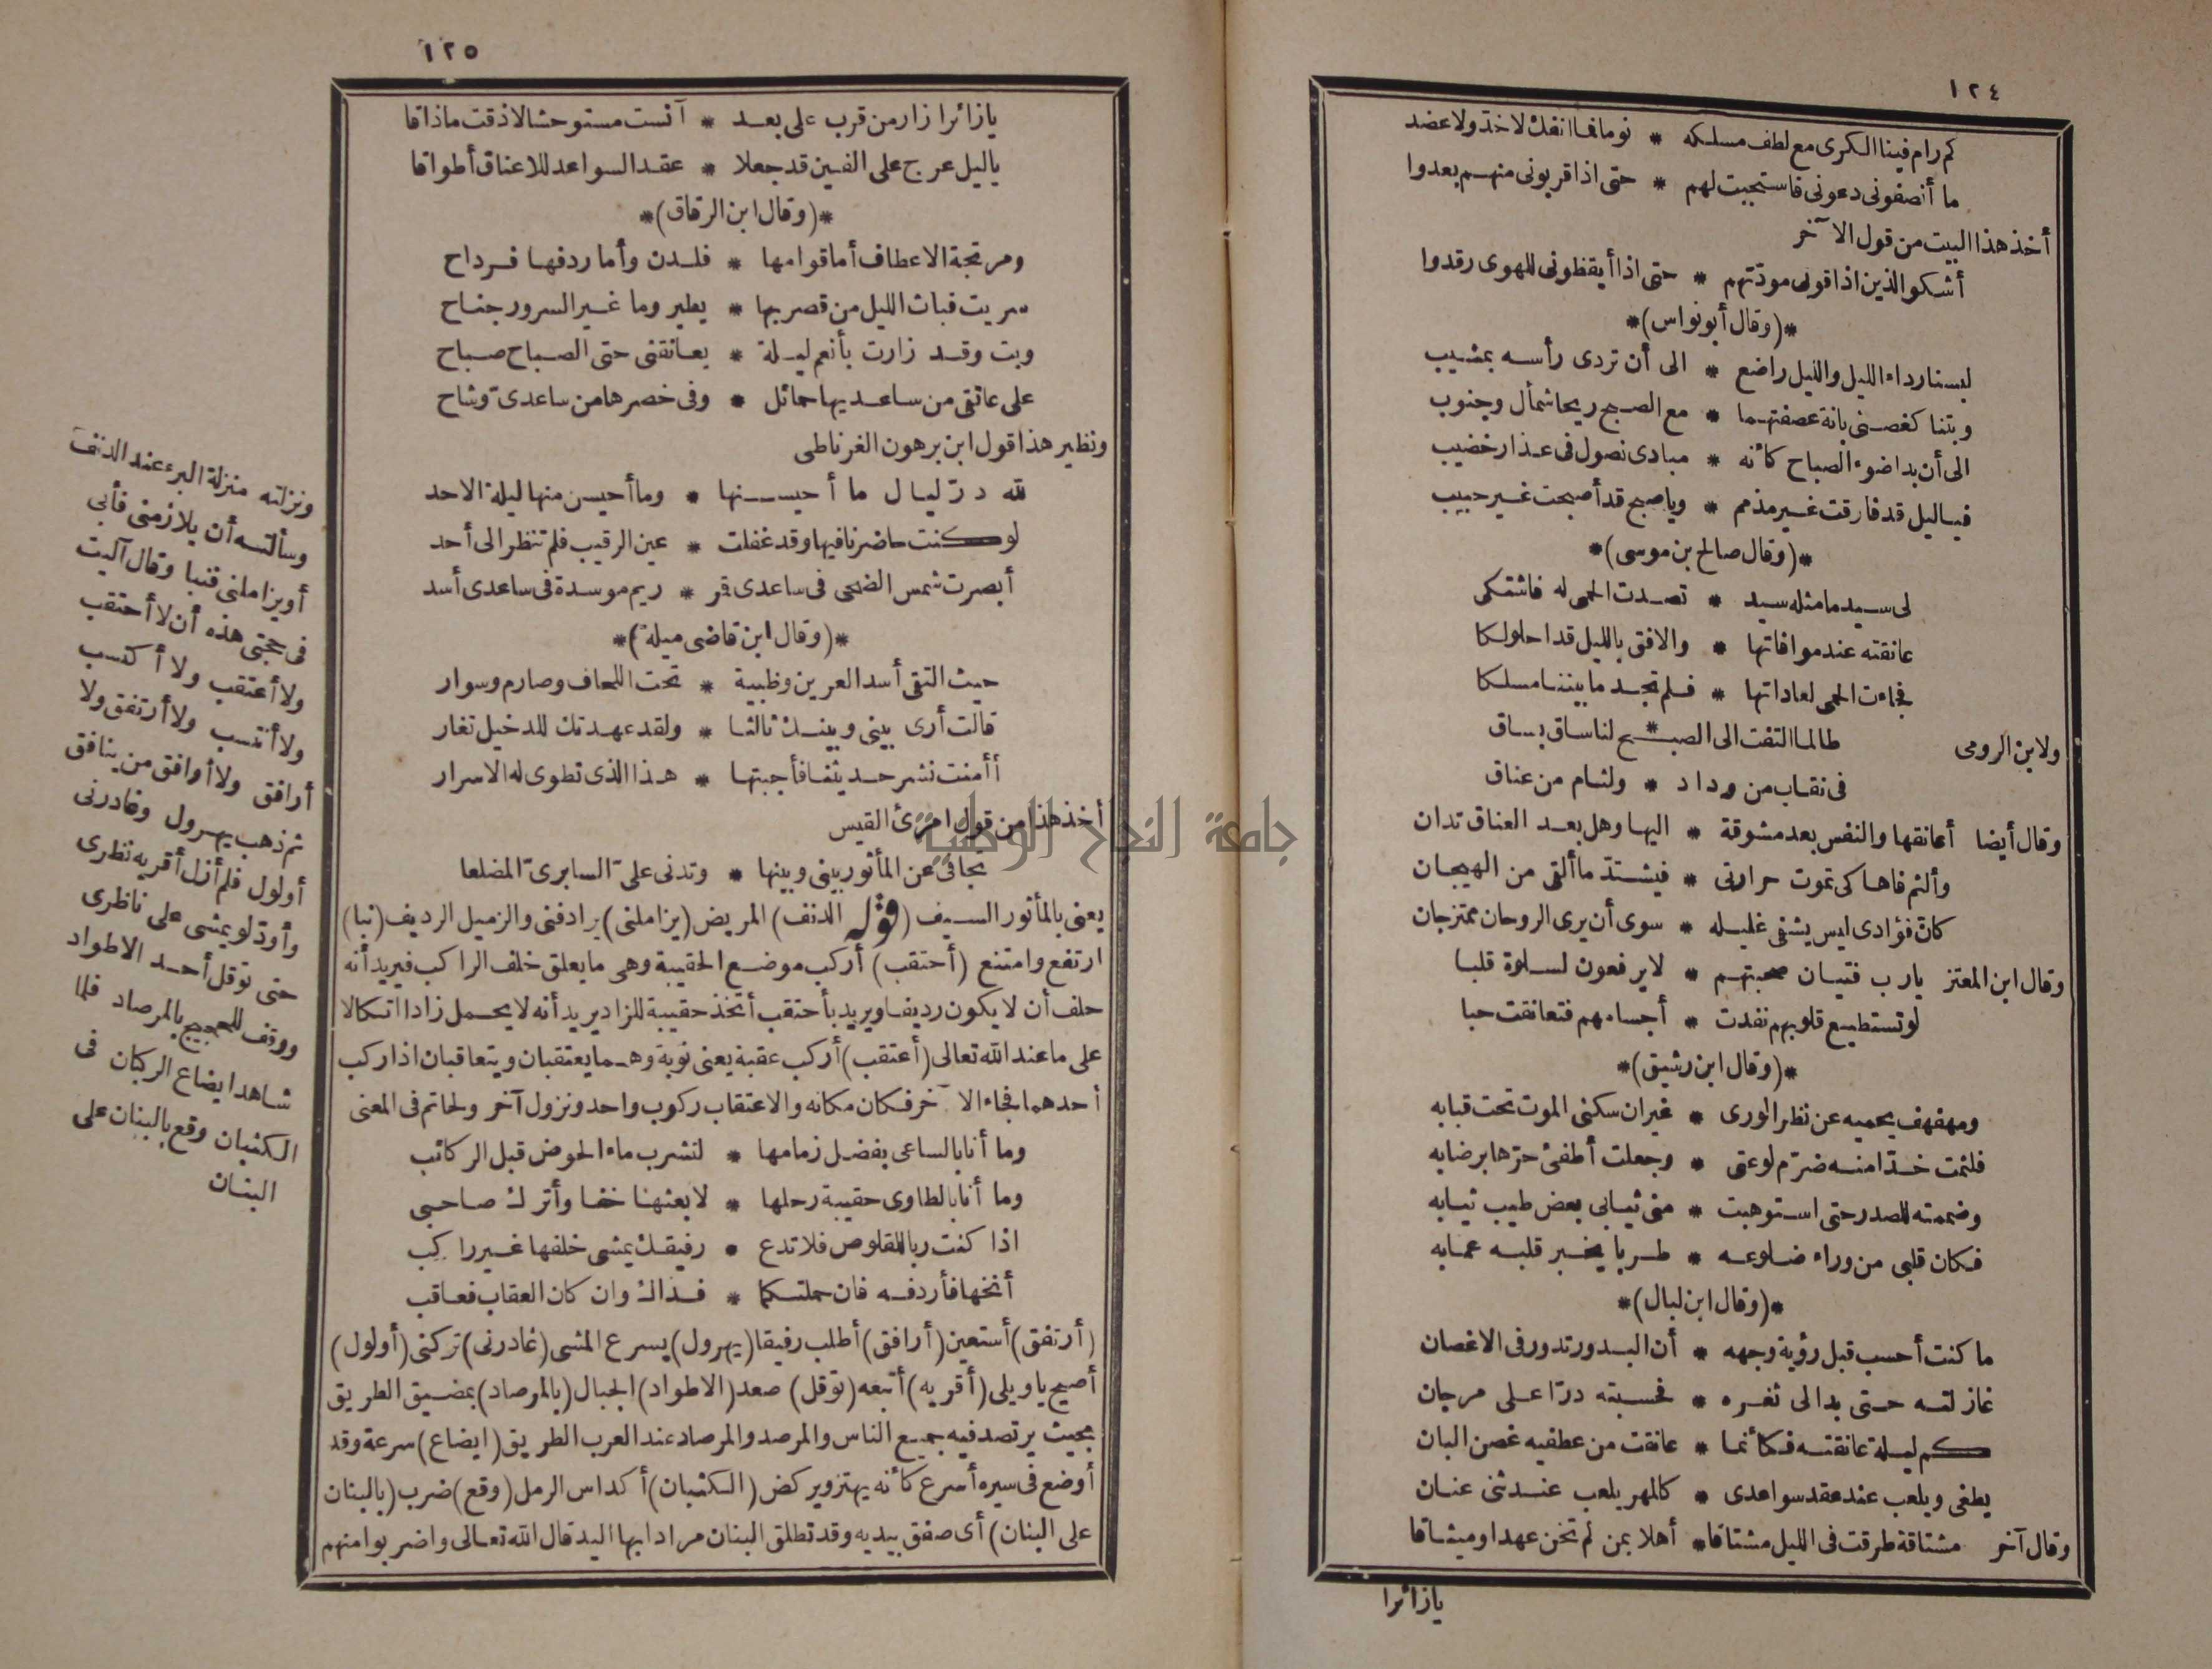 ١٢٤
كم رام فينا الكرى مع لطف مسلكه * نوما فما انفك لا خد ولا عضد
ما أنصفونى دعونى فاستجبت لهم * حتى اذا قربونى منهم بعدوا
أخذ هذا البيت من قول الآخر
أشكو الذين اذاقونى مودّتهم * حتى اذا أيقظونى للهوى رقدوا
*(وقال أبو نواس)*
لبسنا رداء الليل والليل راضع * الى أن تردى رأسه بمشيب
وبتنا كغصنى بانة عصفتهما * مع الصبح ريحا شمأل وجنوب
الى أن بدا ضوء الصباح كأنه * مبادى نصول فى عذار خضيب
فياليل قد فارقت غير مذمم * ويا صبح قد أصبحت غير حبيب
*(وقال صالح بن موسى)*
لى سيد ما مثله سيد * تصدت الحمى له فاشتكى
عانقته عند موافاتها * والافق بالليل قد احلولكا
فجاءت الحمى لعاداتها * فلم تجد ما بيننا مسلكا
ولابن الرومى طالما التفت الى الصبـ * ـح لنا ساق بساق
فى نقاب من وداد * ولثام من عناق
وقال أيضا أعانقها والنفس بعد مشوقة * اليها وهل بعد العناق تدان
وألثم فاها كى تموت حرارتى * فيشتدّ ما ألقى من الهيجان
كانّ فؤادى ليس يشفى غليله * سوى أن يرى الروحان ممتزجان
وقال ابن المعتز يارب فتيان صحبتهم * لا يرفعون لسلوة قلبا
لو تستطيع قلوبهم نفدت * أجسامهم فتعانقت حبا
*(وقال ابن رشيق)*
ومهفهف يحميه عن نظر الورى * غيران سكنى الموت تحت قبابه
فلثمت خدّا منه ضرّم لوعتى * وجعلت أطفئ حرّها برضابه
وضممته للصدر حتى استوهبت * منى ثيابى بعض طيب ثيابه
فكان قلبى من وراء ضلوعه * طربا يخبر قلبه عمابه
*(وقال ابن لبال)*
ما كنت أحسب قبل رؤية وجهه * أن البدور تدور فى الاغصان
غازلته حتى بدا لى ثغره * فحسبته درّا على مرجان
كم ليلة عانقته فكأنما * عانقت من عطفيه غصن البان
يطغى ويلعب عند عقد سواعدى * كالمهر يلعب عند ثنى عنان
وقال آخر مشتاقة طرقت فى الليل مشتاقا * أهلا بمن لم تخن عهدا وميثاقا
يازائرا
١٢٥
يازائرا زار من قرب على بعد * آنست مستوحشا لا ذقت ماذاقا
ياليل عرج على الفين قد جعلا * عقد السواعد للاعناق أطواقا
*(وقال ابن الزقاق)*
ومرتجة الاعطاف أما قوامها * فلدن وأما ردفها فرداح
سريت فبات الليل من قصر بها * يطير وما غير السرور جناح
وبت وقد زارت بأنعم ليلة * يعانقنى حتى الصباح صباح
على عاتقى من ساعديها حمائل * وفى خصرها من ساعدىّ وشاح
ونظير هذا قول ابن برهون الغرناطى
لله درّ ليال ما أحيسنها * وما أحيسن منها ليلة الاحد
لو كنت حاضرنا فيها وقد غفلت * عين الرقيب فلم تنظر الى أحد
أبصرت شمس الضحى فى ساعدى قمر * ريم موسدة فى ساعدى أسد
*(وقال ابن قاضى ميلة)*
حيث التقى أسد العرين وظبية * تحت اللحاف وصارم وسوار
قالت أرى بينى وبينك ثالثا * ولقد عهدتك للدخيل تغار
أأمنت نشر حديثنا فأجبتها * هذا الذى تطوى له الاسرار
أخذ هذا من قول امرئ القيس
تجافى عن المأثور بينى وبينها * وتدنى علىّ السابرىّ المضلعا
يعنى بالمأثور السيف (قوله الدنف) المريض (يزاملنى) يرادفنى والزميل الرديف (نبا)
ارتفع وامتنع (أحتقب) أركب موضع الحقيبة وهى ما يعلق خلف الراكب فيريد أنه
حلف أن لا يكون رديفا ويريد بأحتقب أتخذ حقيبة للزاد يريد أنه لا يحمل زادا اتكالا
على ما عند الله تعالى (أعتقب) أركب عقبة يعنى نوبة وهما يعتقبان ويتعاقبان اذا ركب
أحدهما فجاء الآخر فكان مكانه والاعتقاب ركوب واحد ونزول آخر ولحاتم فى المعنى
وما أنا بالساعى بفضل زمامها * لتشرب ماء الحوض قبل الركائب
وما أنا بالطاوى حقيبة رحلها * لابعثها خفا وأترك صاحبى
اذا كنت ربا للقلوص فلا تدع * رفيقك يمشى خلفها غير راكب
أنخها فأردفه فان حملتكما * فذاك وان كان العقاب فعاقب
(أرتفق) أستعين (أرافق) أطلب رفيقا (يهرول) يسرع المشى (غادرنى) تركنى (أولول)
أصيح ياويلى (أقريه) أتبعه (توقل) صعد (الاطواد) الجبال (بالمرصاد) بمضيق الطريق
بحيث يرتصد فيه جميع الناس والمرصد والمرصاد عند العرب الطريق (ايضاع) سرعة وقد
أوضع فى سيره أسرع كأنه يهتز ويركض (الكثبان) أكداس الرمل (وقع) ضرب (بالبنان
على البنان) أى صفق بيديه وقد تطلق البنان مرادا بها اليد قال الله تعالى واضربوا منهم
ونزلته منزلة البرء عند الدنف
وسألته أن يلازمنى فأبى
أو يزاملنى فنبا وقال آليت
فى حجتى هذه أن لا أحتقب
ولا أعتقب ولا أكتسب
ولا أنتسب ولا أرتفق ولا
أرافق ولا أوافق من ينافق
ثم ذهب يهرول وغادرنى
أولول فلم أزل أقريه نظرى
وأودّ لو يمشى على ناظرى
حتى توقل أحد الاطواد
ووقف للحجيج بالمرصاد فلما
شاهد ايضاع الركبان فى
الكثبان وقع بالبنان على
البنان
جامعة النجاح الوطنية